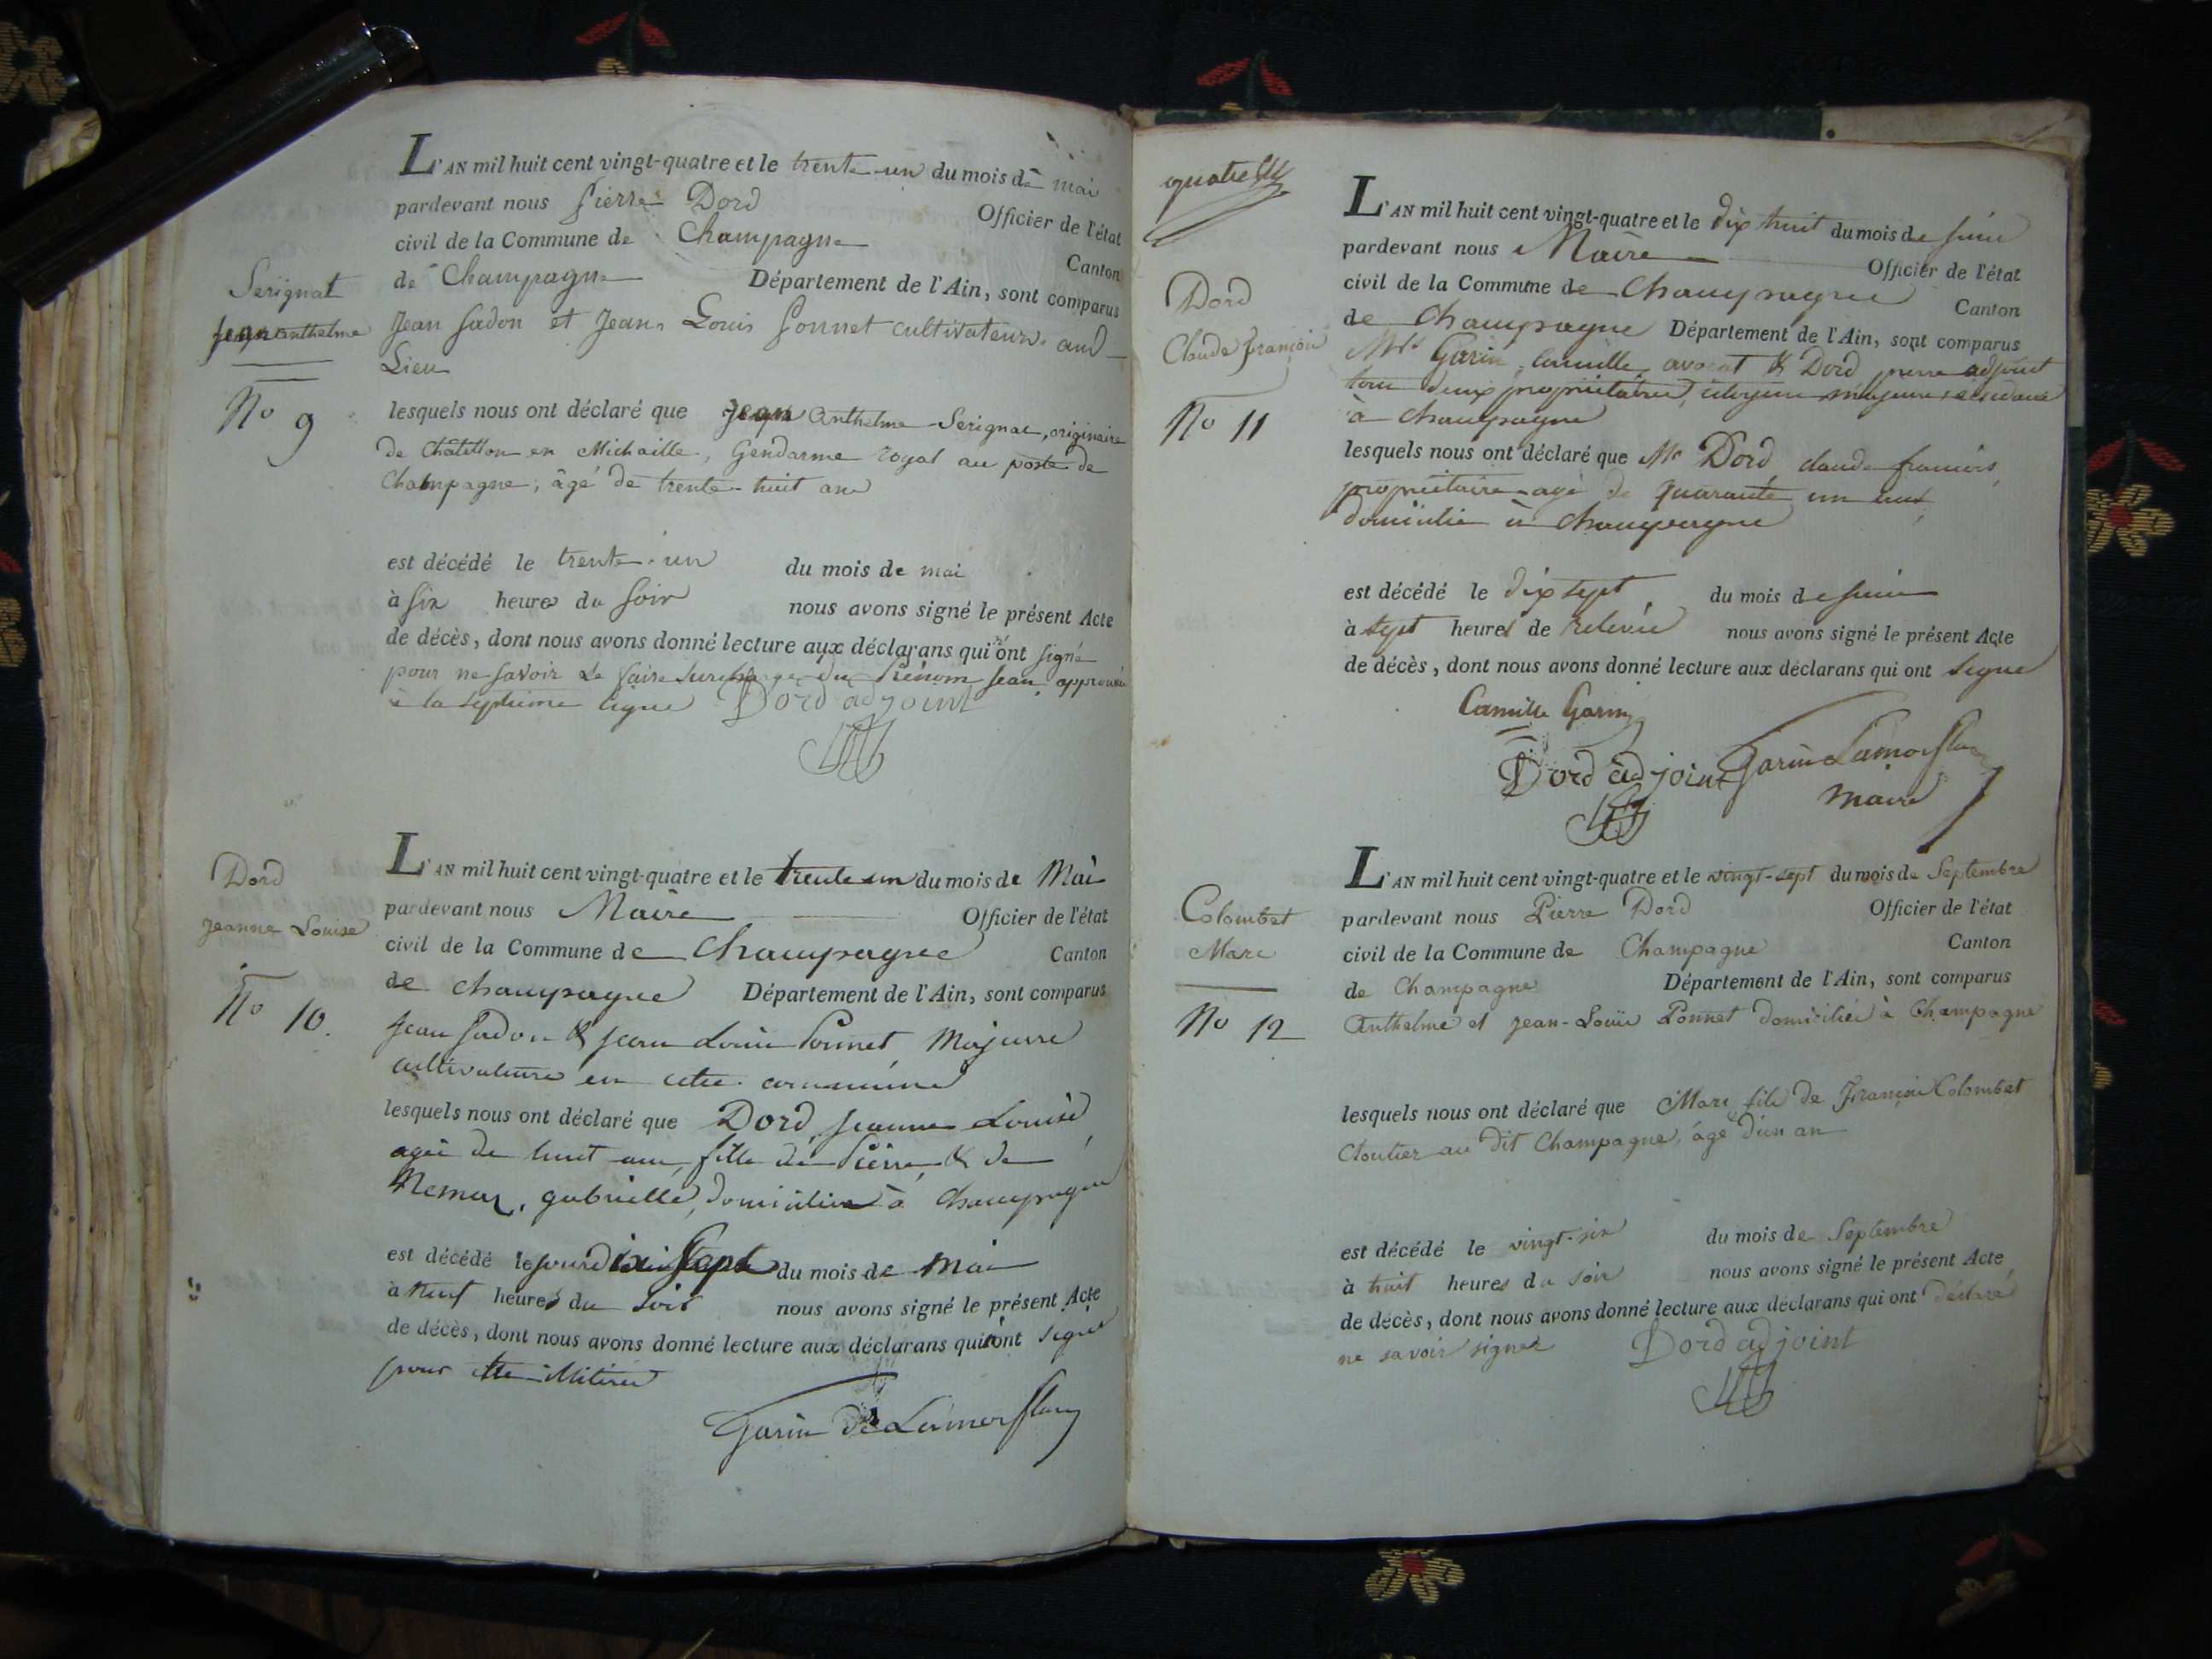 L'AN mil huit cent vingt-quatre et le trente-un du mois de mai
pardevant nous Pierre Dord Officier de l'état
civil de la Commune de Champagne Canton
de Champagne Département de l'Ain, sont comparus
Jean Jadon et Jean Louis Ponnet cultivateurs aud
Lieu
Serignat
Jean anthelme
No 9
lesquels nous ont déclaré que Jean Anthelme Serignat, originaire
de Châtillon en Michaille, Gendarme royal au poste de
Champagne, âgé de trente-huit ans
est décédé le trente-un du mois de mai
à six heures du soir nous avons signé le présent Acte
de décès, dont nous avons donné lecture aux déclarans qui n'ont signé
pour ne savoir le faire surcharge du Prénom Jean approuvée
à la septième ligne Dord adjoint
L'AN mil huit cent vingt-quatre et le trente un du mois de Mai
pardevant nous Maire Officier de l'état
civil de la Commune de Champagne Canton
de Champagne Département de l'Ain, sont comparus
Jean Jadon & Jean Louis Ponnet Majeurs
cultivateurs en cette commune
Dord
Jeanne Louise
No 10.
lesquels nous ont déclaré que Dord Jeanne Louise
agée de huit ans, fille de Pierre & de
gabrielle, domiciliés à Champagne
est décédé le du mois de Mai
à neuf heures du soir nous avons signé le présent Acte
de décès, dont nous avons donné lecture aux déclarans qui ont signé
pour être illitérés
Garin de Lamorflan
quatre
L'AN mil huit cent vingt-quatre et le dix huit du mois de Juin
pardevant nous Maire Officier de l'état
civil de la Commune de Champagne Canton
de Champagne Département de l'Ain, sont comparus
Mrs Garin, Camille avocat & Dord pierre adjoint
tous deux propriétaires, citoyens majeurs résidans
à Champagne
Dord
Claude françois
No 11
lesquels nous ont déclaré que Mr Dord claude françois,
propriétaire agé de quarante un ans,
domicilié à Champagne
est décédé le dix sept du mois de Juin
à sept heures de relevée nous avons signé le présent Acte
de décès, dont nous avons donné lecture aux déclarans qui ont signé
Camille Garin
Dord adjoint Garin Lamorflan
maire
L'AN mil huit cent vingt-quatre et le vingt-sept du mois de Septembre
pardevant nous Pierre Dord Officier de l'état
civil de la Commune de Champagne Canton
de Champagne Département de l'Ain, sont comparus
Anthelme et Jean-Louis Ponnet domiciliés à Champagne
Colombet
Marc
No 12
lesquels nous ont déclaré que Marc fils de François Colombet
Cloutier au dit Champagne, âgé d'un an
est décédé le vingt-six du mois de Septembre
à huit heures du soir nous avons signé le présent Acte
de décès, dont nous avons donné lecture aux déclarans qui ont déclaré
ne savoir signer Dord adjoint